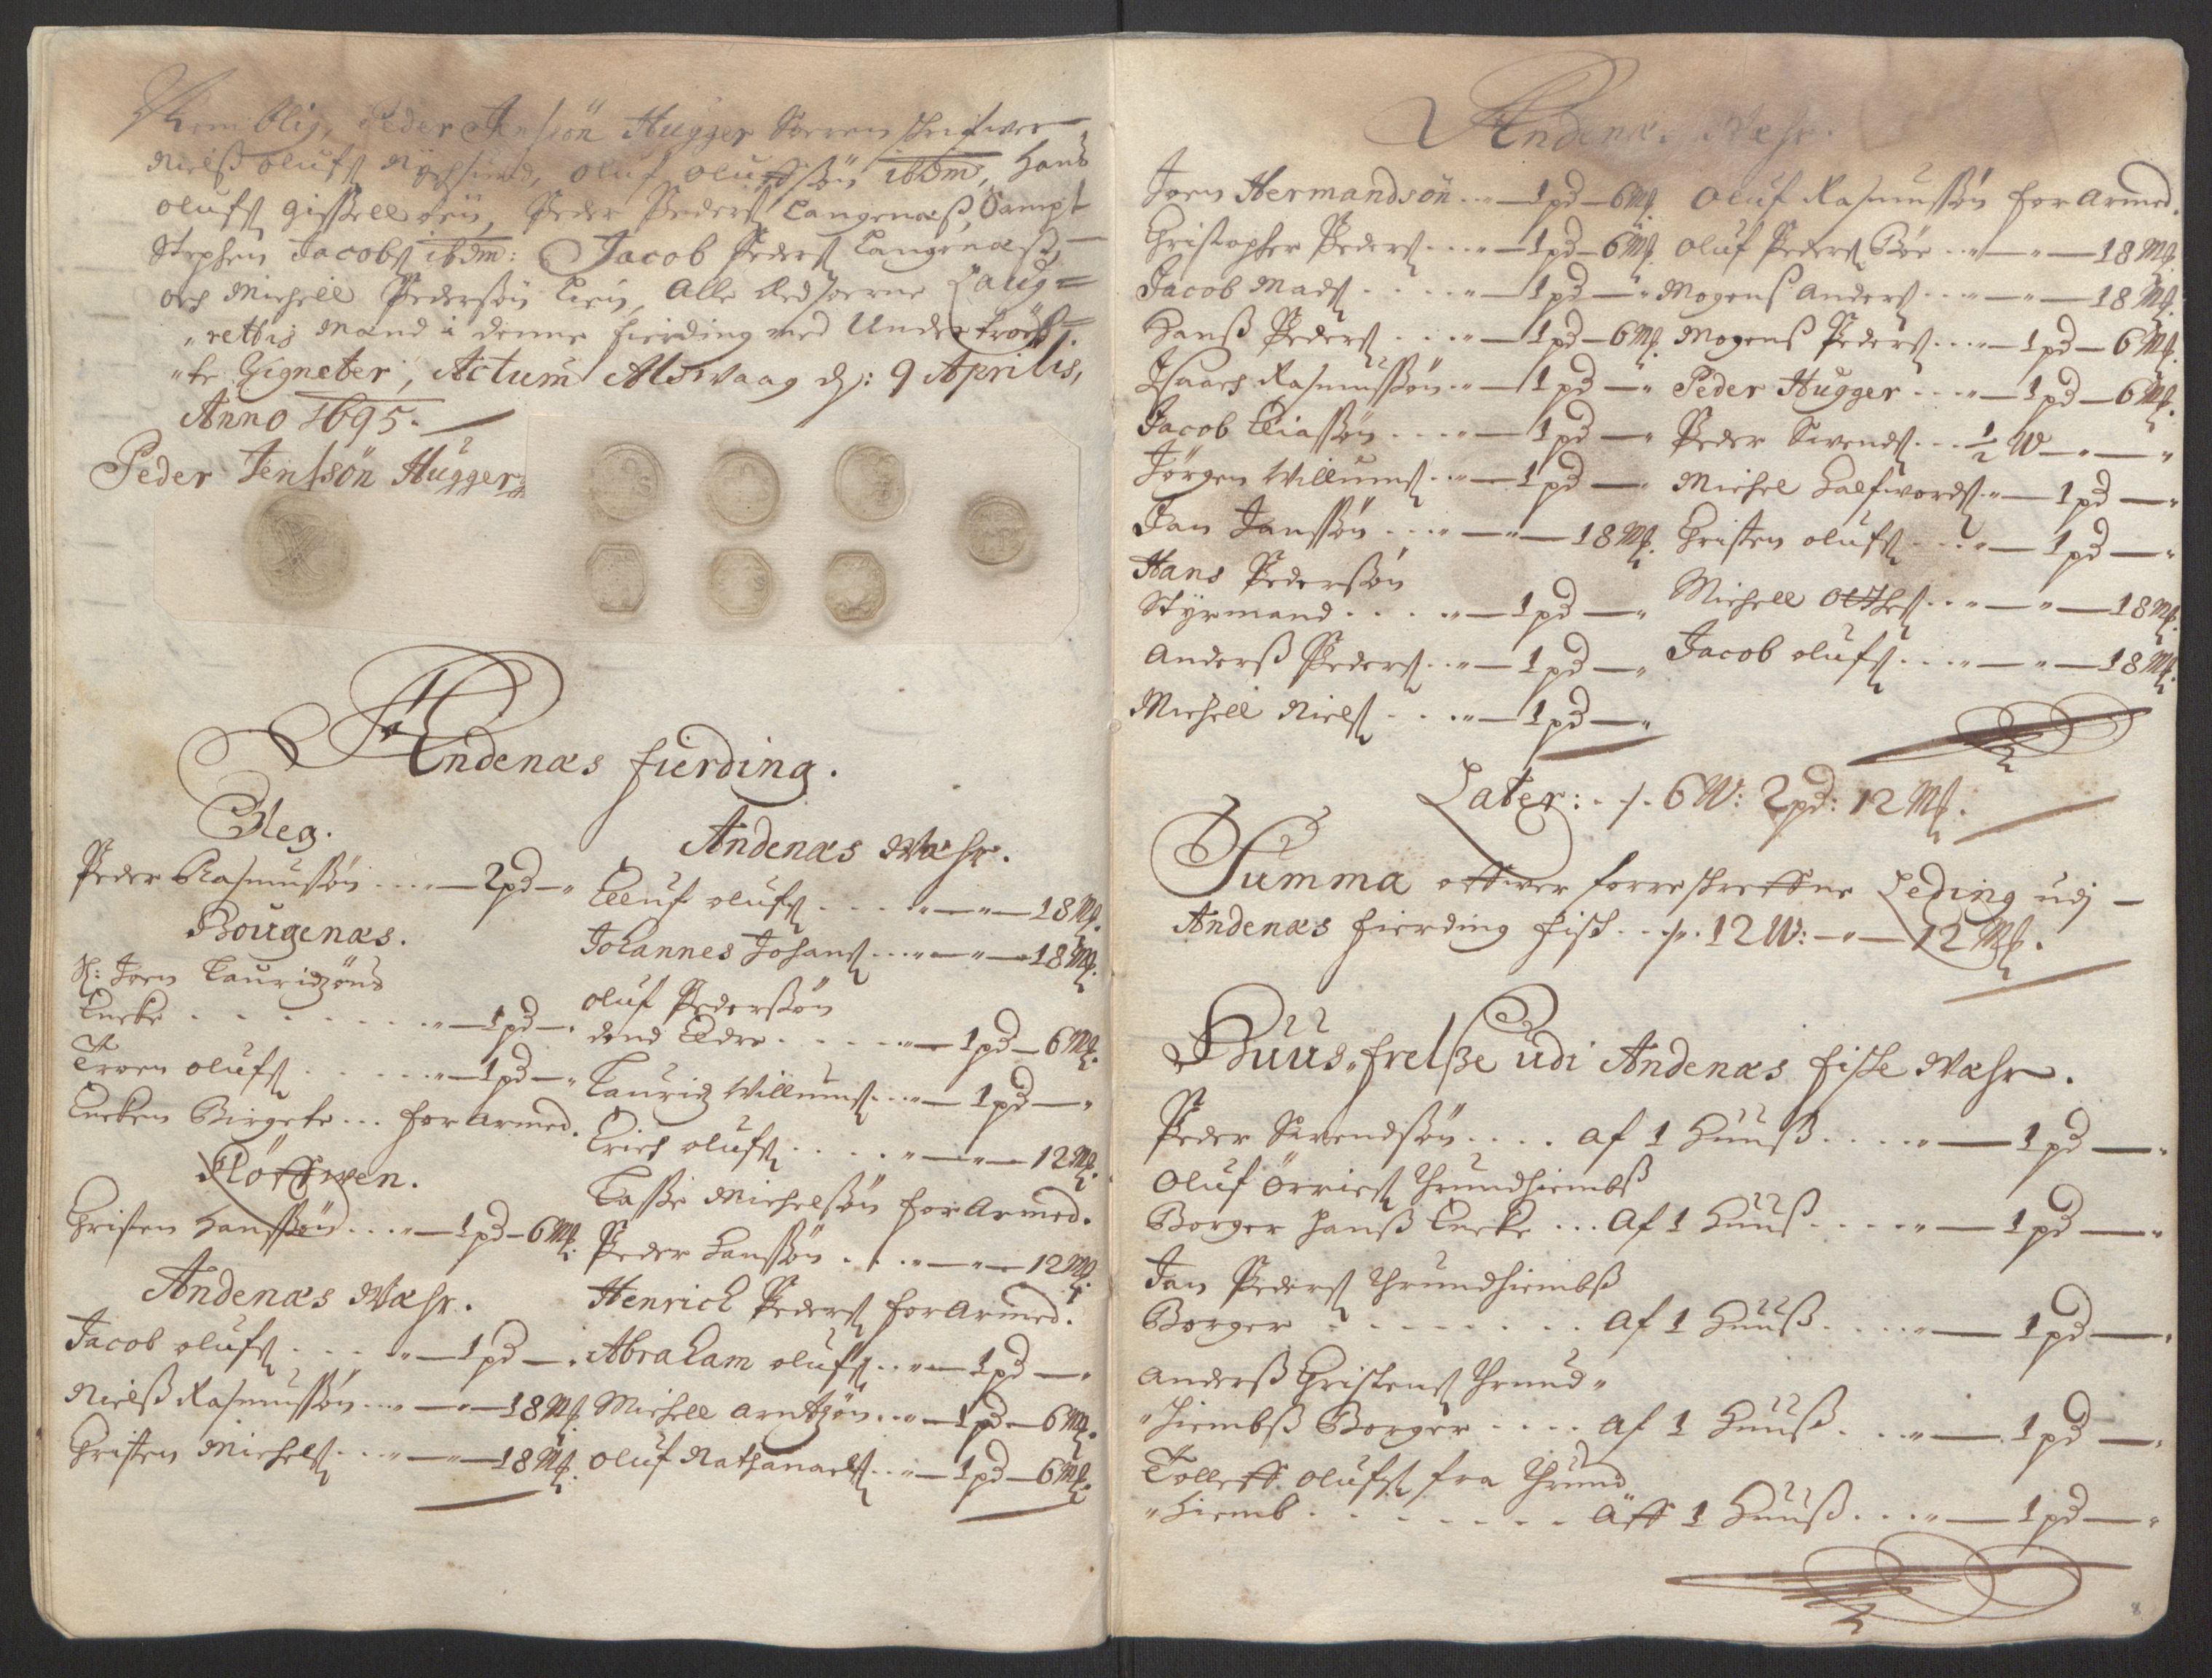 Nemblig, Peder Jenssön Hugger Sorenskrifwer
Nielß Olufs, Oluf Oluffsøn ibdm, Hans
Olufs Gisselløen, Peder Peders Langenæß, Sampt
Stephen Jacobs ibdm: Jacob Peders Langenæß
och Michell Pedersøn, Alle Edsorne Laug=
"rettis Mænd i denne fierding med Undertrøch=
"te Zigneter, Actum Alswaag dj: 9 Aprilis,
Anno 1695.
Peder Jenssön Hugger
Andenæs fierding.
Bleg.
Peder Rasmussøn ... " — 2 pd — "
Bougenæs.
H: Joen Lauridzøns
Encke . . . . . " — 1 pd — "
Troen Olufs . . . . " — 1 pd — "
Encken Birgete ... for Armed.
Kløffwen.
Christen Hanssøn ... " — 1 pd — 6 Mk.
Andenæs Wæhr.
Jacob Olufs . . . . " — 1 pd — "
Nielß Rasmussøn ... " — " — 18 Mk.
Christen Michels ... " — " — 18 Mk.
Andenæs Wæhr.
Elluf Olufs . . . . " — " — 18 Mk.
Johannes Johans ... " — " — 18 Mk.
Oluf Pedersøn
dend Eldre . . . . . " — 1 pd — 6 Mk.
Lauridz Willums ... " — 1 pd — "
Erich Olufs . . . . . " — " — 12 Mk.
Lasse Michelsøn for Armed.
Peder Hanssøn . . . " — " — 12 Mk.
Henrich Peders for Armed.
Abraham Olufs ... " — 1 pd — "
Michell Arntzøn ... " — 1 pd — 6 Mk.
Oluf Nathanaels ... " — 1 pd — 6 Mk.
Andenæs Wæhr.
Joen Hermandsön ... " — 1 pd — 6 Mk.
Christopher Peders ... " — 1 pd — 6 Mk.
Jacob Mads . . . . " — 1 pd — "
Hanß Peders . . . . " — 1 pd — 6 Mk.
Isaach Rasmussøn ... " — 1 pd — "
Jacob Eliassøn . . . " — 1 pd — "
Jörgen Willums ... " — 1 pd — "
Jan Janssøn . . . " — " — 18 Mk.
Hans Pedersøn
Styrmand . . . . " — 1 pd — "
Anderß Peders ... " — 1 pd — "
Michell Niels . . . " — 1 pd — "
Oluf Rasmussøn for Armed.
Oluf Peders Bøe ... " — " — 18 Mk.
Mogenß Anders ... " — " — 18 Mk.
Mogenß Peders ... " — 1 pd — 6 Mk.
Peder Hugger ... " — 1 pd — 6 Mk.
Peder Swends ... ½ W — " — "
Michel Halfwords ... " — 1 pd — "
Christen Olufs ... " — 1 pd — "
Michell Otthes ... " — " — 18 Mk.
Jacob Olufs ... " — " — 18 Mk.
Later: . /. 6 W: 2 pd: 12 Mk.
Summa offwer forreskreffne Leding udj
Andenæs fierding fisk . . /. 12 W: — " — 12 Mk.
Huus-frelße udi Andenæs fiske Wæhr.
Peder Swendsøn . . . . af 1 Huuß . . . . " — 1 pd — "
Oluf Örries Thrundhiembß
Borger Hanß Encke ... Af 1 Huuß . . . . " — 1 pd — "
Jan Peders Thrundhiembß
Borger . . . . . . . . Af 1 Huuß . . . . " — 1 pd — "
Anderß Christens Thrund"
"hiembß Borger . . . . Af 1 Huuß . . . " — 1 pd — "
Tolleff Olufs fra Thrund
"hiemb . . . . . . . Aff 1 Huuß . . . " — 1 pd — "
8